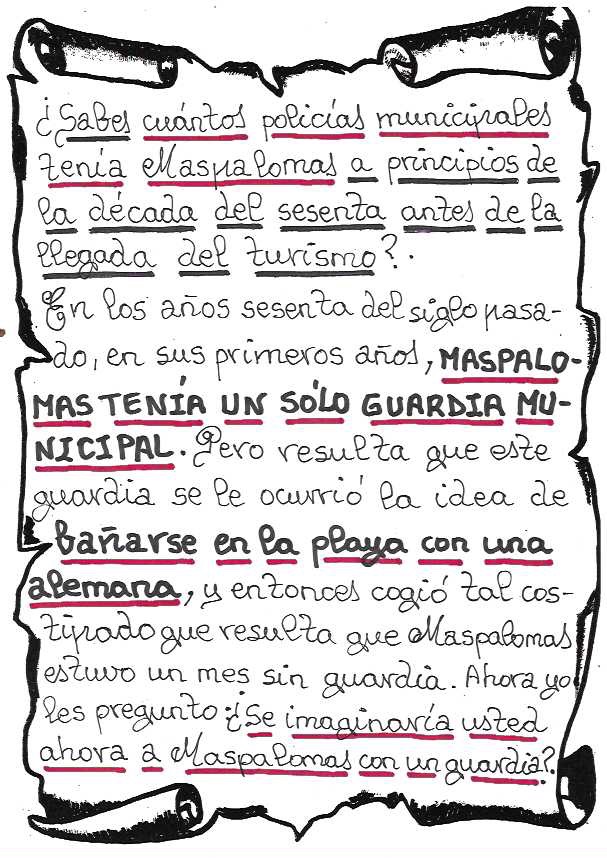 ¿Sabes cuántos policías municipales
tenía Maspalomas a principios de
la década del sesenta antes de la
llegada del turismo?.
En los años sesenta del siglo pasa-
do, en sus primeros años, MASPALO-
MAS TENÍA UN SÓLO GUARDIA MU-
NICIPAL. Pero resulta que este
guardia se le ocurrió la idea de
bañarse en la playa con una
alemana, y entonces cogió tal cos-
tipado que resulta que Maspalomas
estuvo un mes sin guardia. Ahora yo
les pregunto: ¿Se imaginaría usted
ahora a Maspalomas con un guardia?.